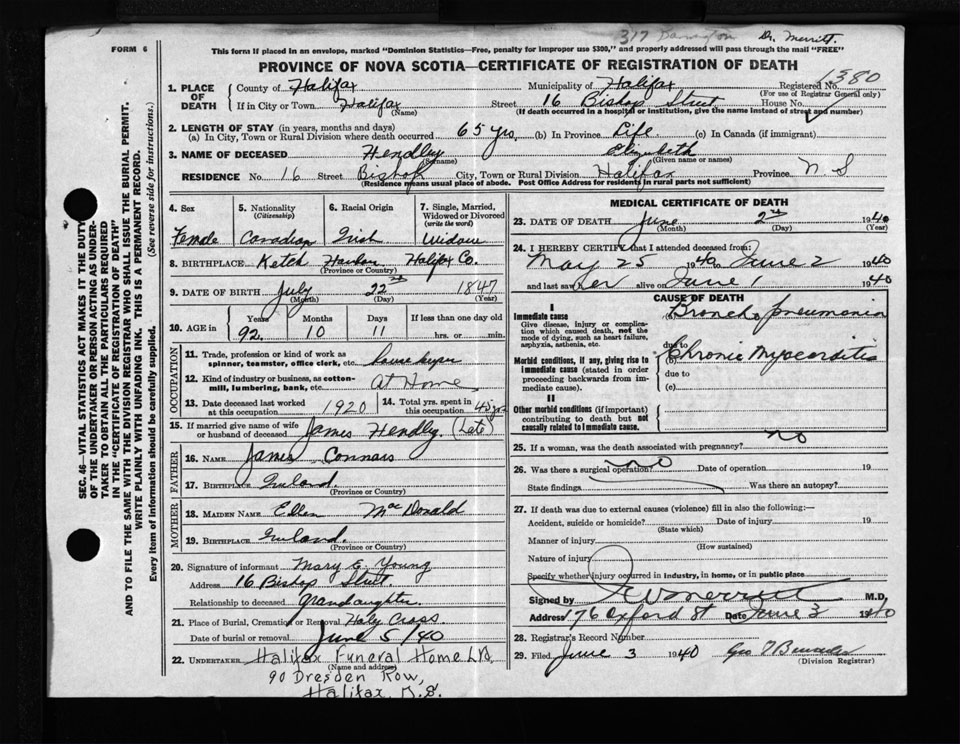 317 Dr. Merritt.
FORM 6
This form if placed in an envelope, marked "Dominion Statistics—Free, penalty for improper use $300," and properly addressed will pass through the mail "FREE"
PROVINCE OF NOVA SCOTIA—CERTIFICATE OF REGISTRATION OF DEATH
1380
1. PLACE OF DEATH
County of Halifax Municipality of Halifax Registered No.
(For use of Registrar General only)
If in City or Town Halifax Street 16 Bishop Street House No.
(Name) (If death occurred in a hospital or institution, give the name instead of street and number)
2. LENGTH OF STAY (in years, months and days)
(a) In City, Town or Rural Division where death occurred 65 yrs. (b) In Province Life (c) In Canada (if immigrant)
3. NAME OF DECEASED Hendley Elizabeth
(Surname) (Given name or names)
RESIDENCE No. 16 Street Bishop City, Town or Rural Division Halifax Province N S
(Residence means usual place of abode. Post Office Address for residents in rural parts not sufficient)
4. Sex
Female
5. Nationality (Citizenship)
Canadian
6. Racial Origin
Irish
7. Single, Married, Widowed or Divorced (write the word)
Widow
8. BIRTHPLACE Ketch Harbor Halifax Co.
(Province or Country)
9. DATE OF BIRTH July 22nd 1847
(Month) (Day) (Year)
10. AGE in
Years Months Days If less than one day old
92 10 11 hrs. or min.
OCCUPATION
11. Trade, profession or kind of work as spinner, teamster, office clerk, etc. housekeeper
12. Kind of industry or business, as cotton-mill, lumbering, bank, etc. at Home
13. Date deceased last worked at this occupation 1920
14. Total yrs. spent in this occupation 45 yrs
15. If married give name of wife or husband of deceased James Hendley. (Late)
FATHER
16. NAME James Connors
17. BIRTHPLACE Ireland.
(Province or Country)
MOTHER
18. MAIDEN NAME Ellen McDonald
19. BIRTHPLACE Ireland.
(Province or Country)
20. Signature of informant Mary C. Young
Address 16 Bishop Street.
Relationship to deceased Grandaughter.
21. Place of Burial, Cremation or Removal Holy Cross
Date of burial or removal June 5/40
22. UNDERTAKER Halifax Funeral Home Ltd.
(Name and address)
90 Dresden Row,
Halifax, N.S.
MEDICAL CERTIFICATE OF DEATH
23. DATE OF DEATH June 2nd 1940
(Month) (Day) (Year)
24. I HEREBY CERTIFY that I attended deceased from:
May 25 1940 to June 2 1940
and last saw her alive on June 1 1940
CAUSE OF DEATH
I
Immediate cause
Give disease, injury or complication which caused death, not the mode of dying, such as heart failure, asphyxia, asthenia, etc.
Broncho pneumonia
due to
Morbid conditions, if any, giving rise to immediate cause (stated in order proceeding backwards from immediate cause).
(b) Chronic Myocarditis
due to
(c)
II
Other morbid conditions (if important) contributing to death but not causally related to immediate cause.
25. If a woman, was the death associated with pregnancy? no
26. Was there a surgical operation? no Date of operation 19
State findings Was there an autopsy?
27. If death was due to external causes (violence) fill in also the following:—
Accident, suicide or homicide? Date of injury 19
(State which)
Manner of injury
(How sustained)
Nature of injury
Specify whether injury occurred in industry, in home, or in public place
Signed by Merritt M.D.
Address 176 Oxford St Date June 3 1940
28. Registrar's Record Number
29. Filed June 3 1940 Geo
(Division Registrar)
SEC. 46—VITAL STATISTICS ACT MAKES IT THE DUTY OF THE UNDERTAKER OR PERSON ACTING AS UNDERTAKER TO OBTAIN ALL THE PARTICULARS REQUIRED IN THE "CERTIFICATE OF REGISTRATION OF DEATH" AND TO FILE THE SAME WITH THE DIVISION REGISTRAR WHO SHALL ISSUE THE BURIAL PERMIT.
WRITE PLAINLY WITH UNFADING INK. THIS IS A PERMANENT RECORD.
Every item of information should be carefully supplied. (See reverse side for instructions.)